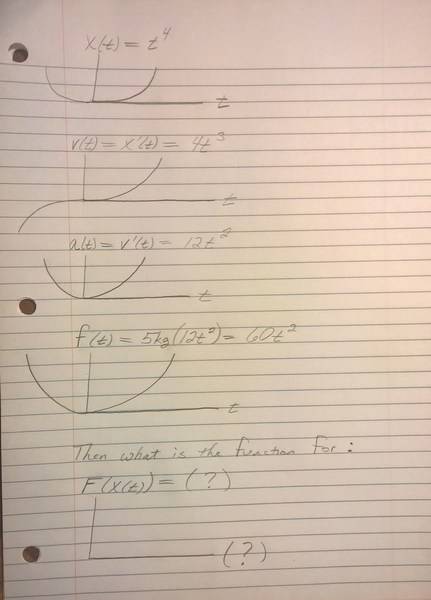 x(t) = t⁴
t
v(t) = x'(t) = 4t³
t
a(t) = v'(t) = 12t²
t
f(t) = 5kg(12t²) = 60t²
t
Then what is the function for:
F(x(t)) = (?)
(?)